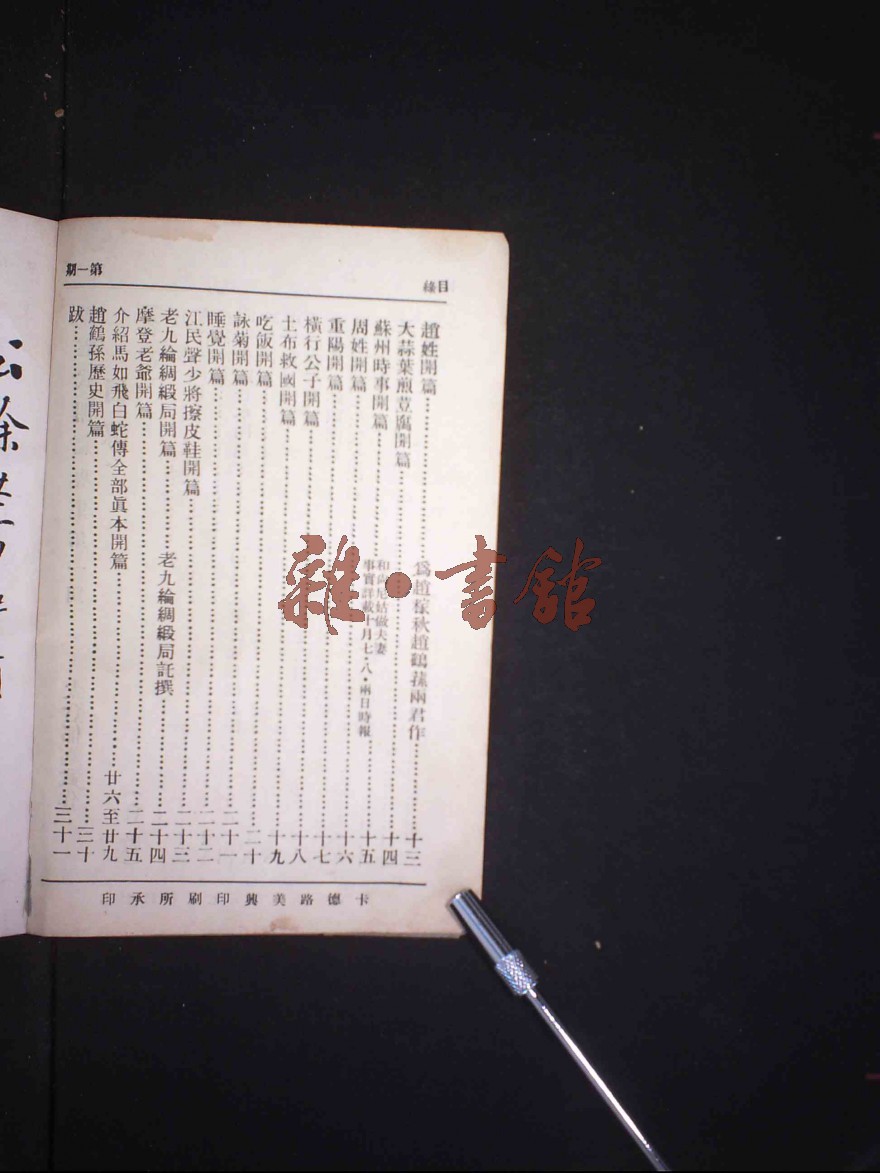 目錄
第一期
趙姓開篇……為趙稼秋趙鶴蓀兩君作……十三
大蒜葉煎荳腐開篇……十四
蘇州時事開篇……和尚尼姑做夫妻
事實詳載十月七·八·兩日時報……十五
周姓開篇……十六
重陽開篇……十七
橫行公子開篇……十八
土布救國開篇……十九
吃飯開篇……二十
詠菊開篇……二十一
睡覺開篇……二十二
江民聲少將擦皮鞋開篇……二十三
老九綸綢緞局開篇……老九綸綢緞局託撰……二十四
摩登老爺開篇……二十五
介紹馬如飛白蛇傳全部眞本開篇……廿六至廿九
趙鶴孫歷史開篇……三十
跋……三十一
卡德路美興印刷所承印
雜·書館